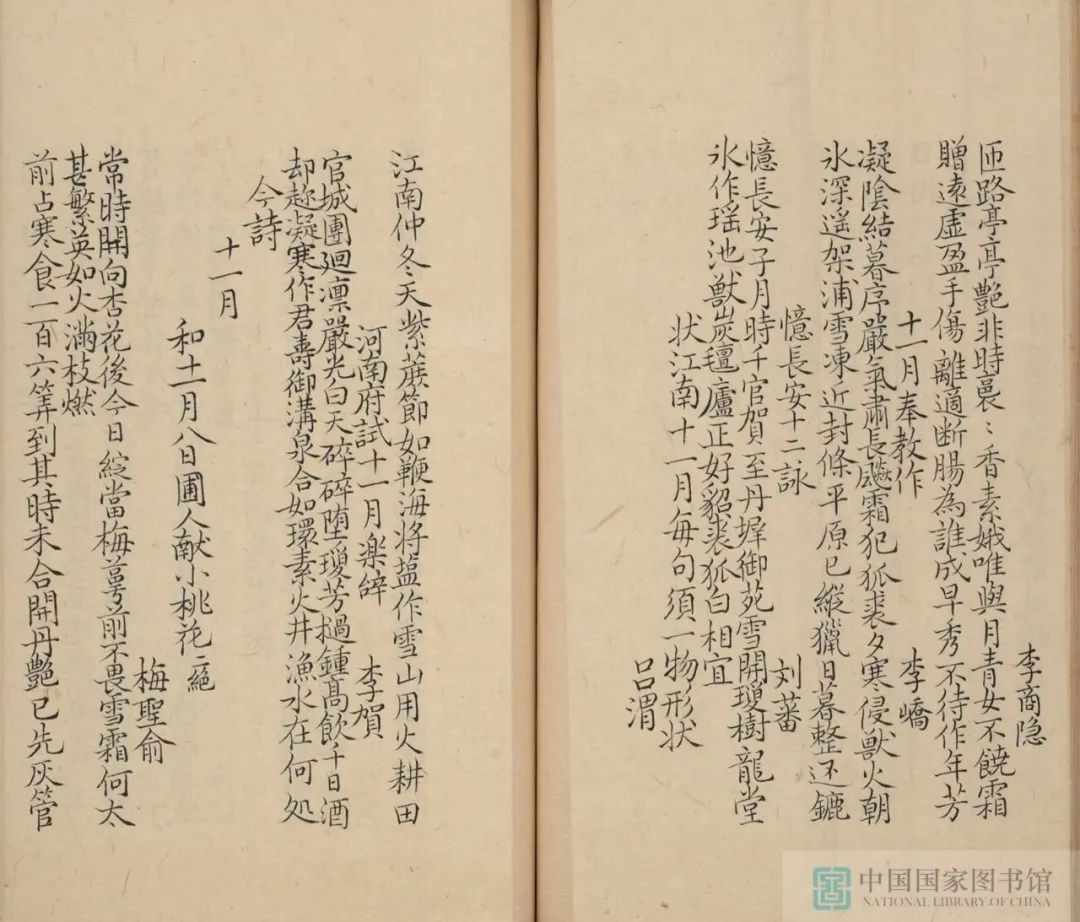 李商隐
匝路亭亭艷非時裛〻香素娥唯與月青女不饒霜
贈遠虛盈手傷離適断腸為誰成早秀不待作年芳
十一月奉教作
李嶠
凝陰結暮序嚴氣肅長飈霜犯狐裘夕寒侵獸火朝
氷深遥架浦雪凍近封條平原已縱獵日暮整还鑣
憶長安十二詠
刘蕃
憶長安子月時千官賀至丹墀御苑雪開瓊樹龍堂
氷作瑶池獸炭氊廬正好貂裘狐白相宜
状江南十一月每句須一物形状
吕渭
江南仲冬天紫蔗節如鞭海将塩作雪山用火耕田
河南府試十一月楽辞
李賀
官城團廻凛嚴光白天碎碎堕瓊芳撾鍾高飲千日酒
却趂凝寒作君壽御溝泉合如環素火井漁水在何処
今詩
十一月
和十一月八日圃人献小桃花二絕
梅聖俞
常時開向杏花後今日綻當梅萼前不畏雪霜何太
甚繁英如火滿枝燃
前占寒食一百六筭到其時未合開丹艷已先灰管
中国国家图书馆
NATIONAL LIBRARY OF CHINA